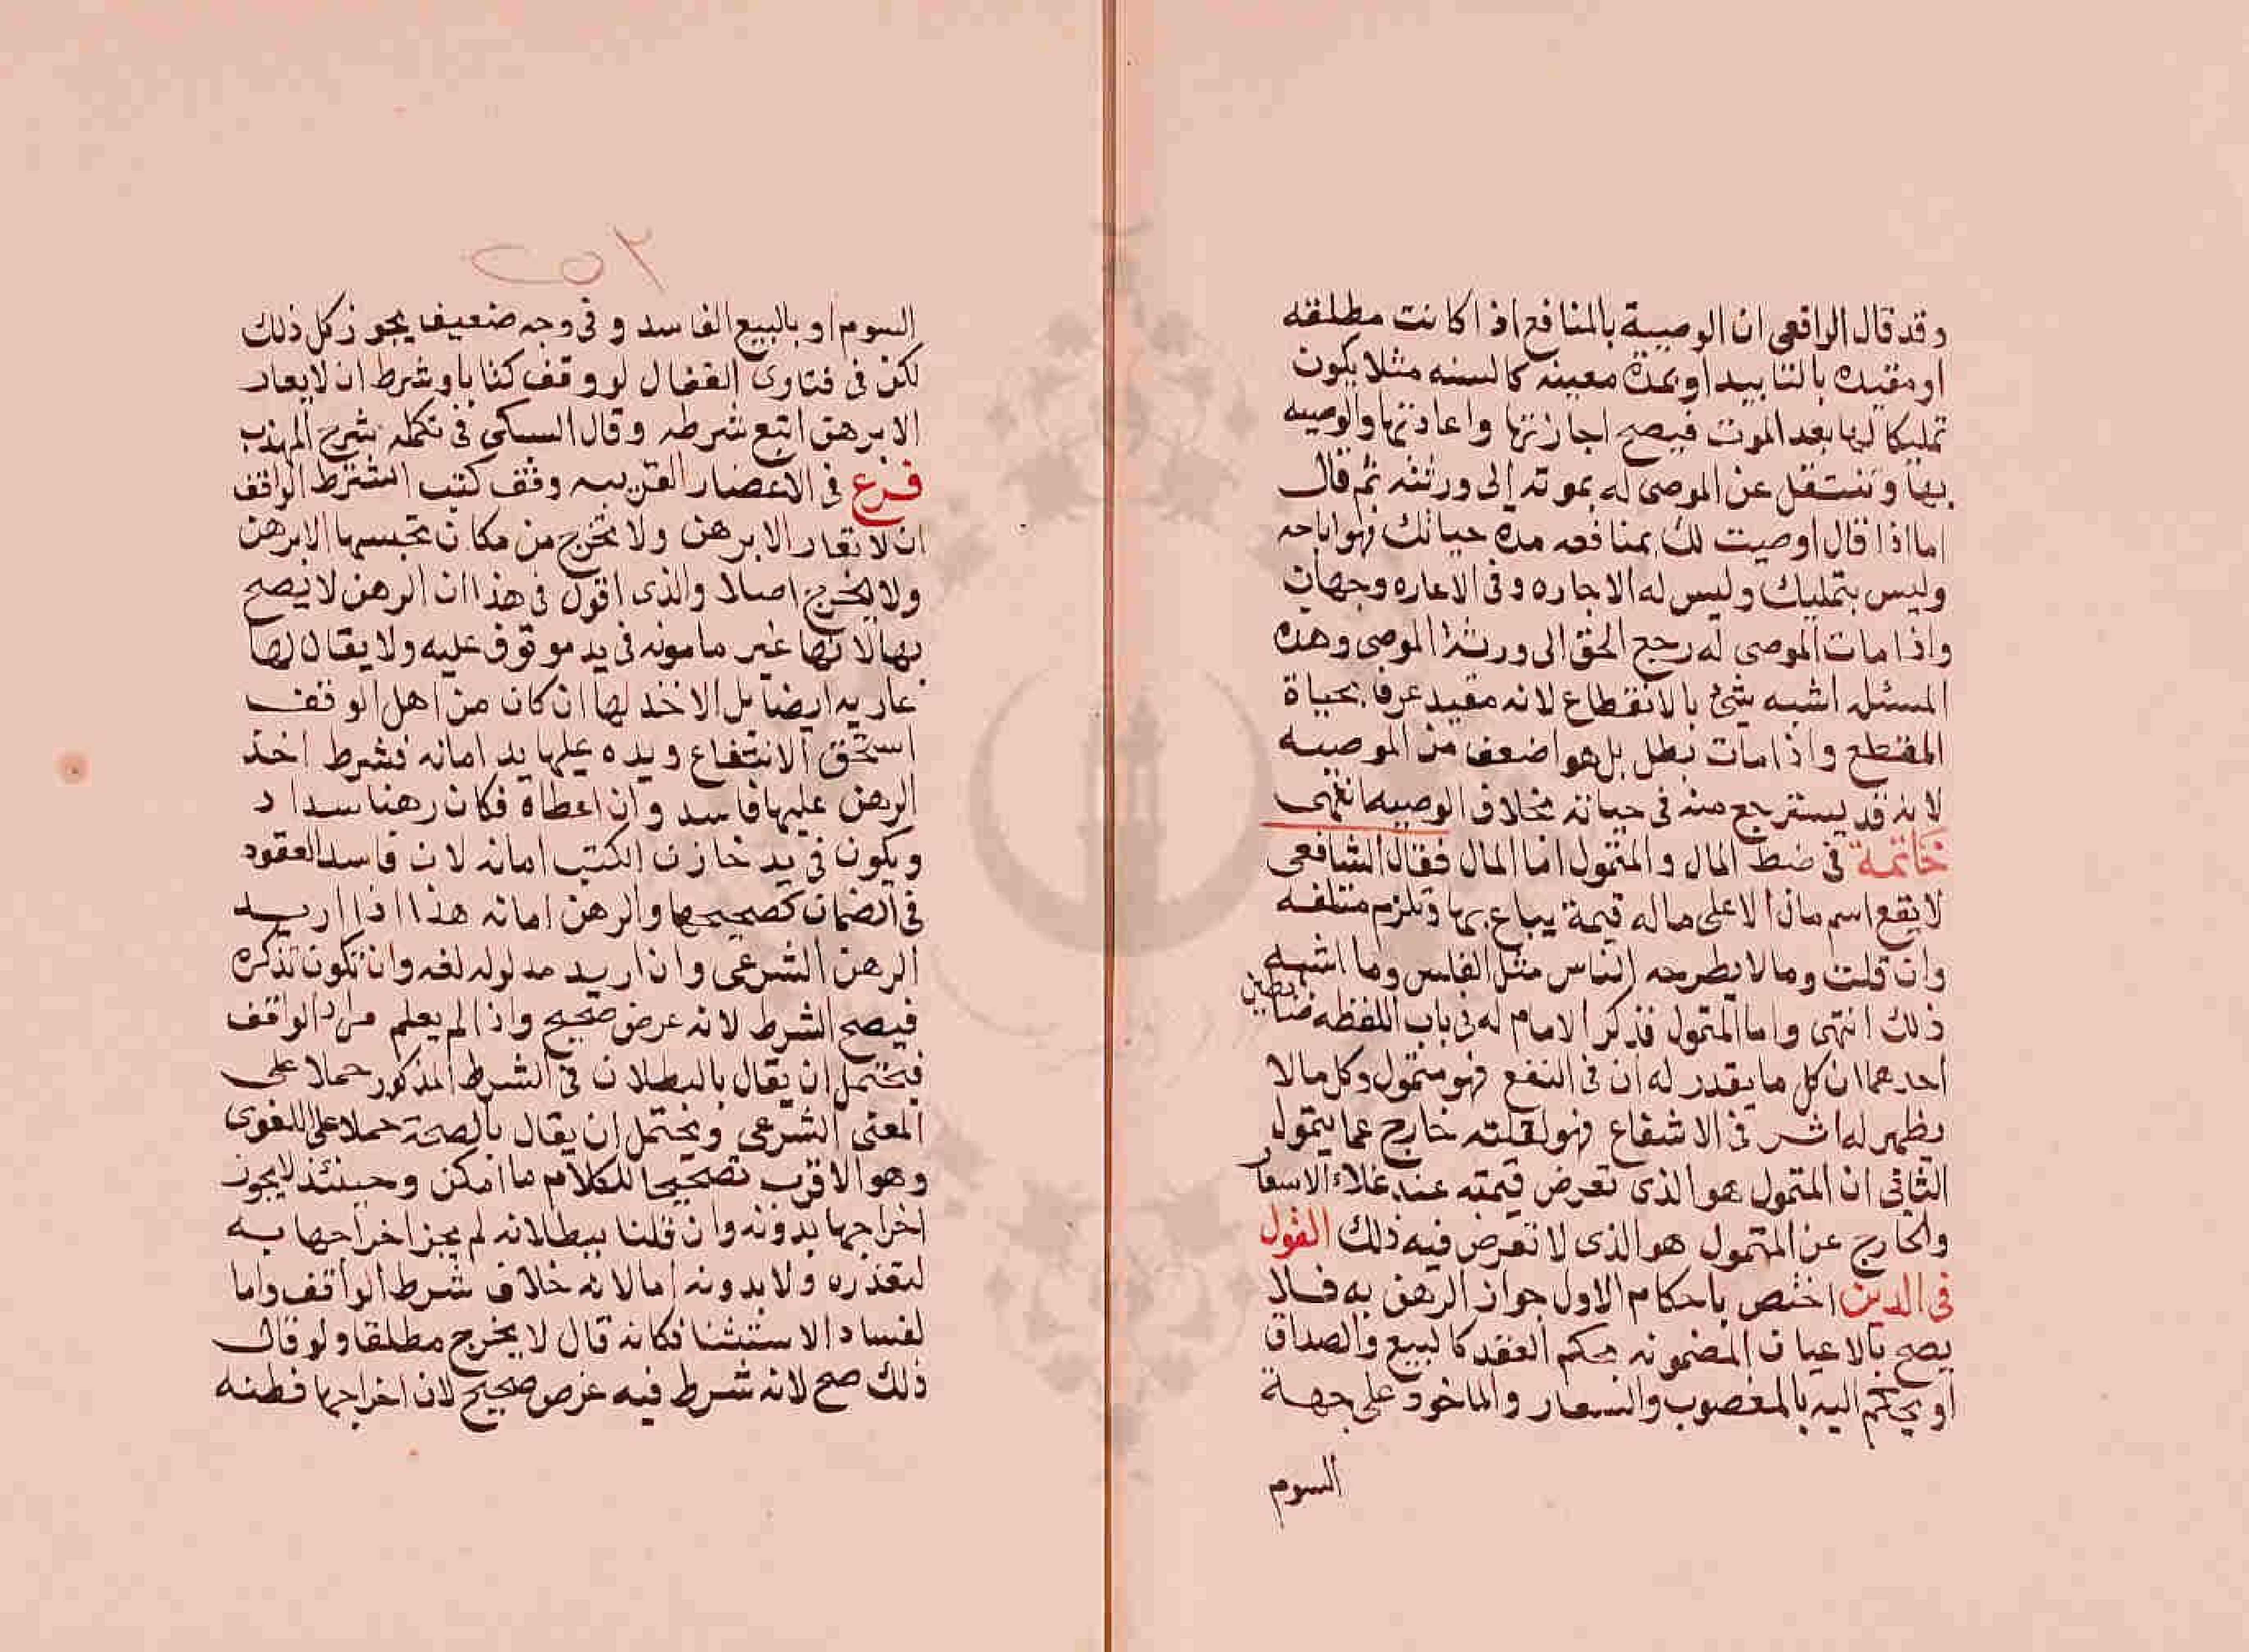 وقد قال الرافعى ان الوصية بالمنافع اذا كانت مطلقه
او مقيده بالتابيد او بمدة معينه كالسنه مثلا يكون
تمليكا لها بعد الموت فيصح اجارتها واعادتها والوصيه
بها وتنتقل عن الموصى له بموته إلى ورثته ثم قال
اما اذا قال اوصيت لك بمنافعه مده حياتك فهو اباحه
وليس بتمليك وليس له الاجاره وفى الاعاره وجهان
واذا مات الموصى له رجع الحق الى ورثة الموصى وهذه
المسئله اشبه شئ بالانقطاع لانه مقيد عرفا بحياة
المقطع واذا مات بطل بل هو اضعف من الموصيه
لانه قد يسترجع منه فى حياته بخلاف الوصيه انتهى
خاتمة فى ضبط المال والمتمول اما المال فقال الشافعى
لا يقع اسم مال الا على ماله قيمة يباع بها وتلزم متلفه
وان قلت وما لا يطرحه الناس مثل الفلس وما اشبه
ذلك انتهى واما المتمول فذكر الامام له فى باب اللقطه ضابطين
احدهما ان كل ما يقدر له ان فى النفع فهو متمول وكل مالا
يظهر له اثر فى الاشفاع فهو لقلته خارج عما يتمول
الثانى ان المتمول هو الذى تعرض قيمته عند غلاء الاسعار
والخارج عن المتمول هو الذى لا تعرض فيه ذلك القول
فى الدين اختص باحكام الاول جواز الرهن به فلا
يصح بالاعيان المضمونه بحكم العقد كالبيع والصداق
او بحكم اليه بالمغصوب والسعار والماخود على جهة
السوم
٢٥٢
السوم او بالبيع الفاسد وفى وجه ضعيف يجوز كل ذلك
لكن فى فتاوى القفال لو وقف كتابا وشرط ان لا يعار
الا برهن اتبع شرطه وقال السبكى فى تكمله شرح المهذب
فرع فى الاعصار القريبه وقف كتب اشترط الواقف
ان لا تعار الا برهن ولا تخرج من مكان تحبسها الا برهن
ولا يخرج اصلا والذى اقول فى هذا ان الرهن لا يصح
بها لانها غير مامونه فى يد موقوف عليه ولا يقال لها
عاريه ايضا بل الاخذ لها ان كان من اهل الوقف
استحق الانتفاع ويده عليها يد امانه فشرط اخذ
الرهن عليها فاسد وان اعطاه فكان رهنا سدا د
ويكون فى يد خازن الكتب امانه لان فاسد العقود
فى الضمان كصحيحها والرهن امانه هذا اذا اريد
الرهن الشرعى وان اريد مدلوله لغه وان تكون تذكره
فيصح الشرط لانه غرض صحيح واذا لم يعلم مراد الواقف
فيحتمل ان يقال بالبطلان فى الشرط المذكور حملا على
المعنى الشرعى ويحتمل ان يقال بالصحة حملا على اللغوى
وهو الاقرب تصحيحا للكلام ما امكن وحينئذ لا يجوز
اخراجها بدونه وان قلنا ببطلانه لم يجز اخراجها به
لتعذره ولا بدونه اما لانه خلاف شرط الواقف واما
لفساد الاستثنا فكانه قال لا يخرج مطلقا ولو قال
ذلك صح لانه شرط فيه غرض صحيح لان اخراجها فطنه